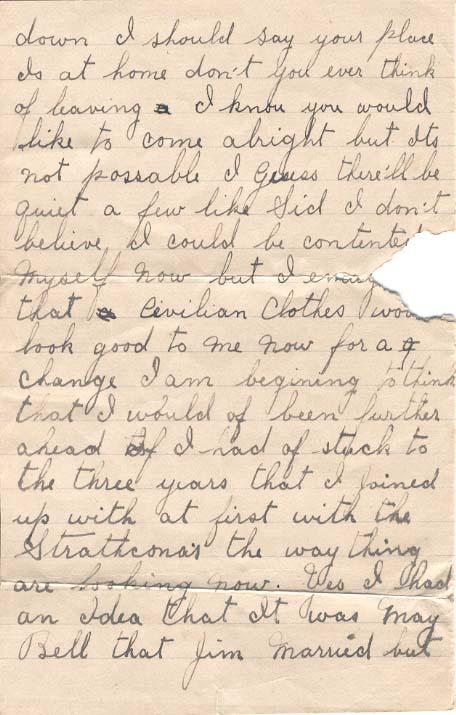 down I should say your place
Is at home don't you ever think
of leaving I know you would
like to come alright but Its
not possable I Guess there'll be
quiet a few like Sid I don't
believe I could be contented
Myself Now but I
that Civilian Clothes
look good to me Now for a
change I am begining to think
that I would of been further
ahead if I had of stuck to
the three years that I Joined
up with at first with the
Strathcona's the way thing
are looking now. Yes I had
an Idea that It was May
Bell that Jim Married but